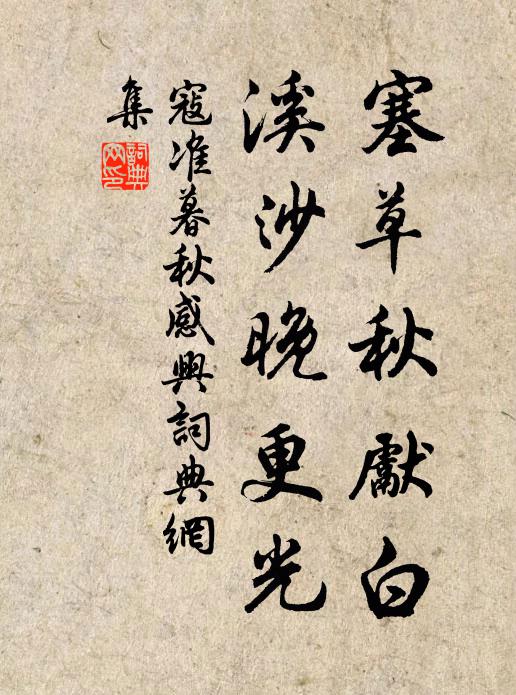 塞草秋獻白
溪沙晚更光
寇准暮秋感興詞典網
集
詞典網印